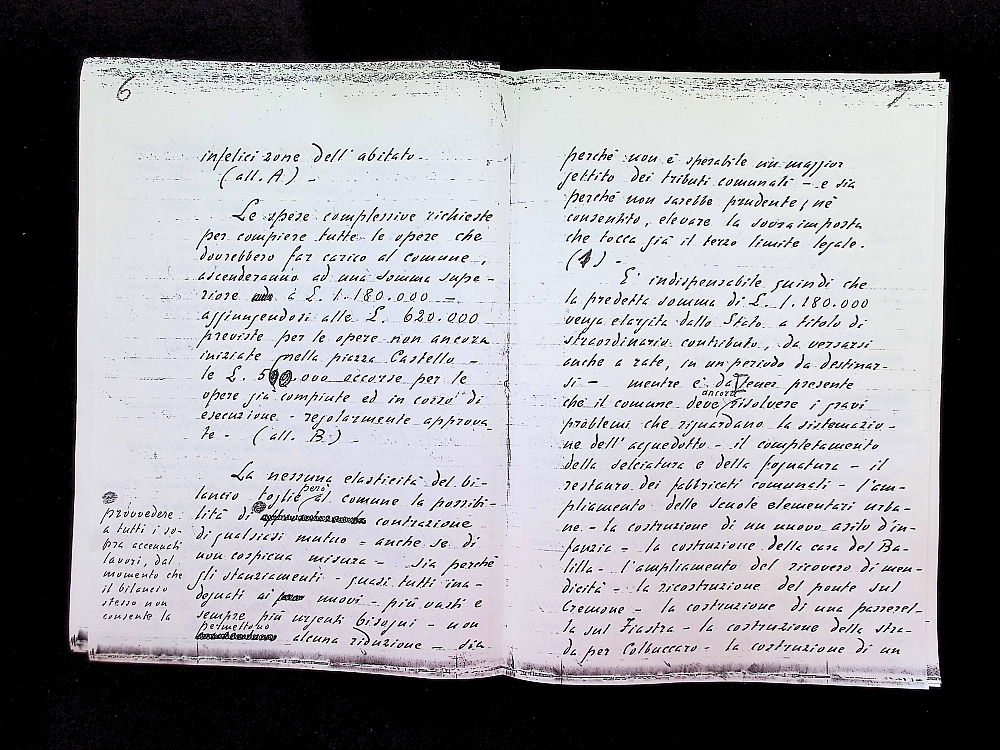 6
infelici zone dell'abitato.
(all. A) -
Le spese complessive richieste
per compiere tutte le opere che
dovrebbero far carico al comune,
ascenderanno ad una somma supe-
riore a £. 1.180.000 -
aggiungendosi alle £. 620.000
previste per le opere non ancora
iniziate nella piazza Castello -
le £. 500.000 accorse per le
opere già compiute ed in corso di
esecuzione - regolarmente approva
te - (all. B.) -
La nessuna elasticità del bi-
lancio toglie però al comune la possibi-
lità di contrazione
di qualsiasi mutuo - anche se di
non cospicua misura - sia perchè
gli stanziamenti - quasi tutti ina-
deguati ai nuovi - più vasti e
sempre più urgenti bisogni - non
permettono
alcuna riduzione - sia
provvedere
a tutti i so-
pra accennati
lavori, dal
momento che
il bilancio
stesso non
consente la
7
perchè non è sperabile un maggior
gettito dei tributi comunali - e sia
perchè non sarebbe prudente, nè
consentito, elevare la sovraimposta
che tocca già il terzo limite legale.
(1) -
E' indispensabile quindi che
la predetta somma di £. 1.180.000
venga elargita dallo Stato a titolo di
straordinario contributo, da versarsi
anche a rate, in un periodo da destinar-
si - mentre è da tener presente
che il comune deve ancora risolvere i gravi
problemi che riguardano la sistemazio-
ne dell'acquedotto - il completamento
della selciatura e della fognatura - il
restauro dei fabbricati comunali - l'am-
pliamento delle scuole elementari urba-
ne - la costruzione di un nuovo asilo d'in-
fanzia - la costruzione della casa del Ba-
lilla - l'ampliamento del ricovero di men-
dicità - la ricostruzione del ponte sul
Cremone - la costruzione di una passerel-
la sul Fiastra - la costruzione della stra-
da per Colbuccaro - la costruzione di un